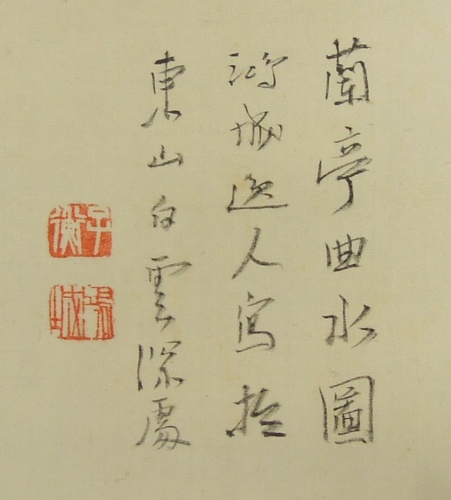 蘭亭曲水圖
鴻城逸人寫扵
東山白雲深處
子衡